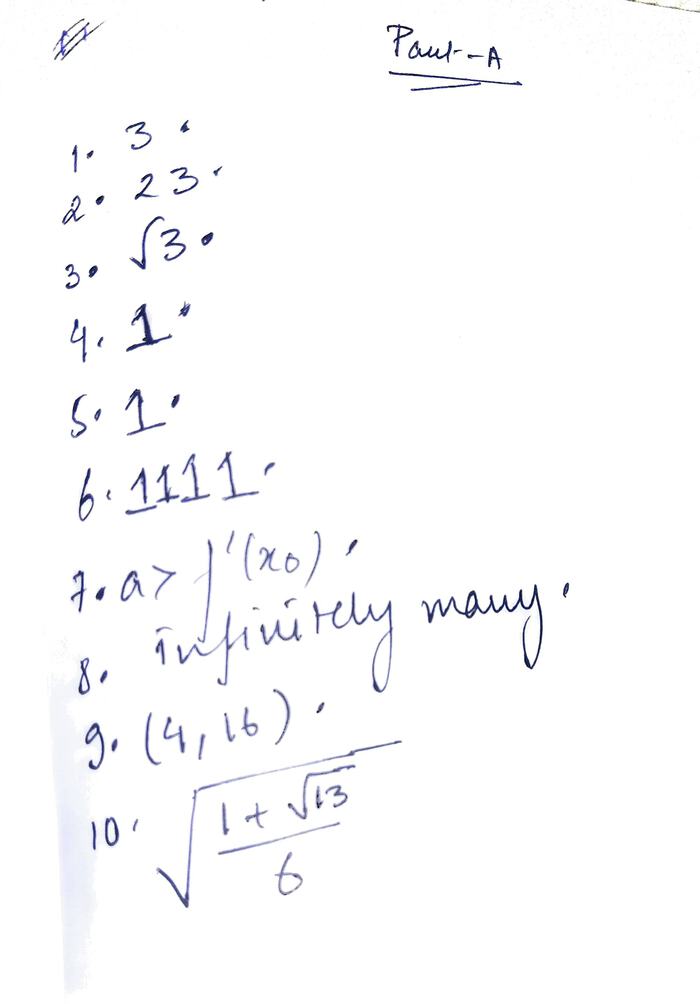 Part-A
1. 3.
2. 23.
3. √3.
4. 1.
5. 1.
6. 1111.
7. a > f'(x₀).
8. infinitely many.
9. (4, 16).
10. √((1 + √13)/6)